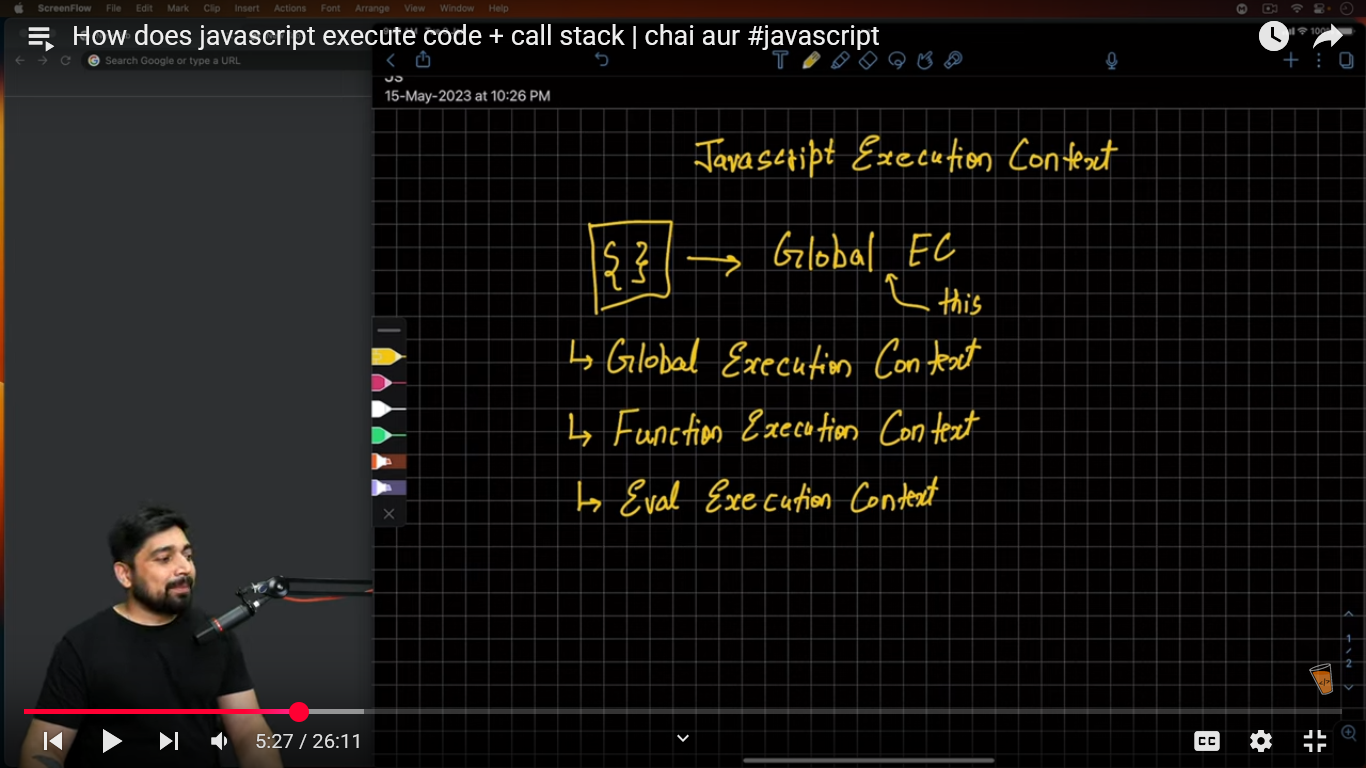 ScreenFlow File Edit Mark Clip Insert Actions Font Arrange View Window Help
How does javascript execute code + call stack | chai aur #javascript
Search Google or type a URL
JS
15-May-2023 at 10:26 PM
Javascript Execution Context
{ } → Global EC
this
↳ Global Execution Context
↳ Function Execution Context
↳ Eval Execution Context
1
/
2
5:27 / 26:11
CC